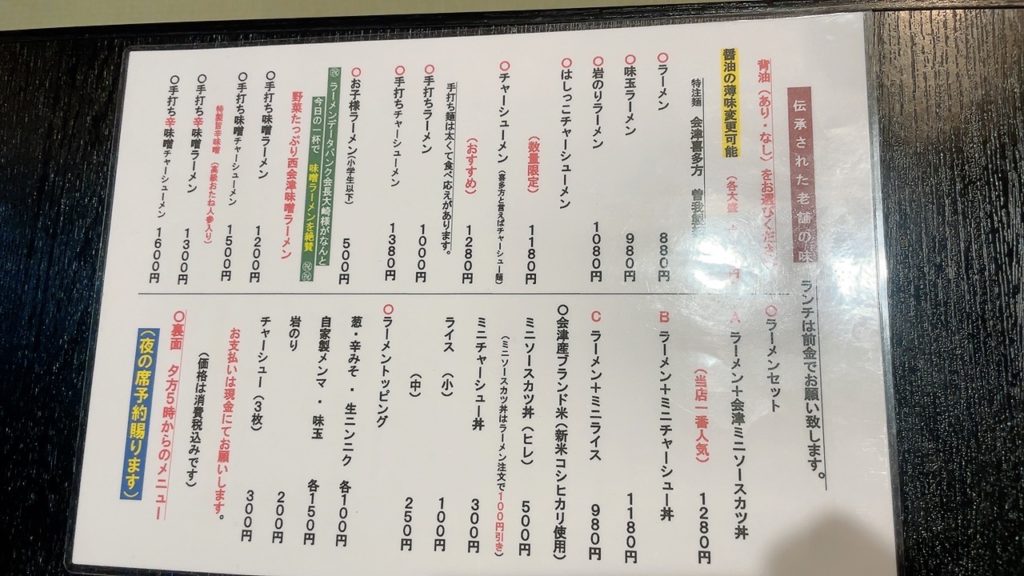 伝承された老舗の味
ランチは前金でお願い致します。
背油(あり・なし)をお選びください
醤油の薄味変更可能
(各大盛
円)
特注麺 会津喜多方 曽我製
〇ラーメン 880円
〇味玉ラーメン 980円
〇岩のりラーメン 1080円
〇はしっこチャーシューメン
(数量限定) 1180円
〇チャーシューメン(喜多方と言えばチャーシュー麺)
(おすすめ) 1280円
手打ち麺は太くて食べ応えがあります。
〇手打ちラーメン 1000円
〇手打ちチャーシューメン 1380円
〇お子様ラーメン(小学生以下) 500円
㊗ラーメンデータバンク会長大崎様がなんと
今日の一杯で 味噌ラーメンを絶賛 ㊗㊗
野菜たっぷり西会津味噌ラーメン
〇手打ち味噌ラーメン 1200円
〇手打ち味噌チャーシューメン 1500円
特製旨辛味噌(高級おたね人参入り)
〇手打ち辛味噌ラーメン 1300円
〇手打ち辛味噌チャーシューメン 1600円
〇ラーメンセット
A ラーメン+会津ミニソースカツ丼
(当店一番人気) 1280円
B ラーメン+ミニチャーシュー丼
1180円
C ラーメン+ミニライス 980円
〇会津産ブランド米(新米コシヒカリ使用)
ミニソースカツ丼(ヒレ) 500円
(ミニソースカツ丼はラーメン注文で100円引き)
ミニチャーシュー丼 300円
ライス(小) 100円
(中) 250円
〇ラーメントッピング
葱・辛みそ・生ニンニク 各100円
自家製メンマ・味玉 各150円
岩のり 200円
チャーシュー(3枚) 300円
お支払いは現金にてお願いします。
(価格は消費税込みです)
〇裏面 夕方5時からのメニュー
(夜の席予約賜ります)